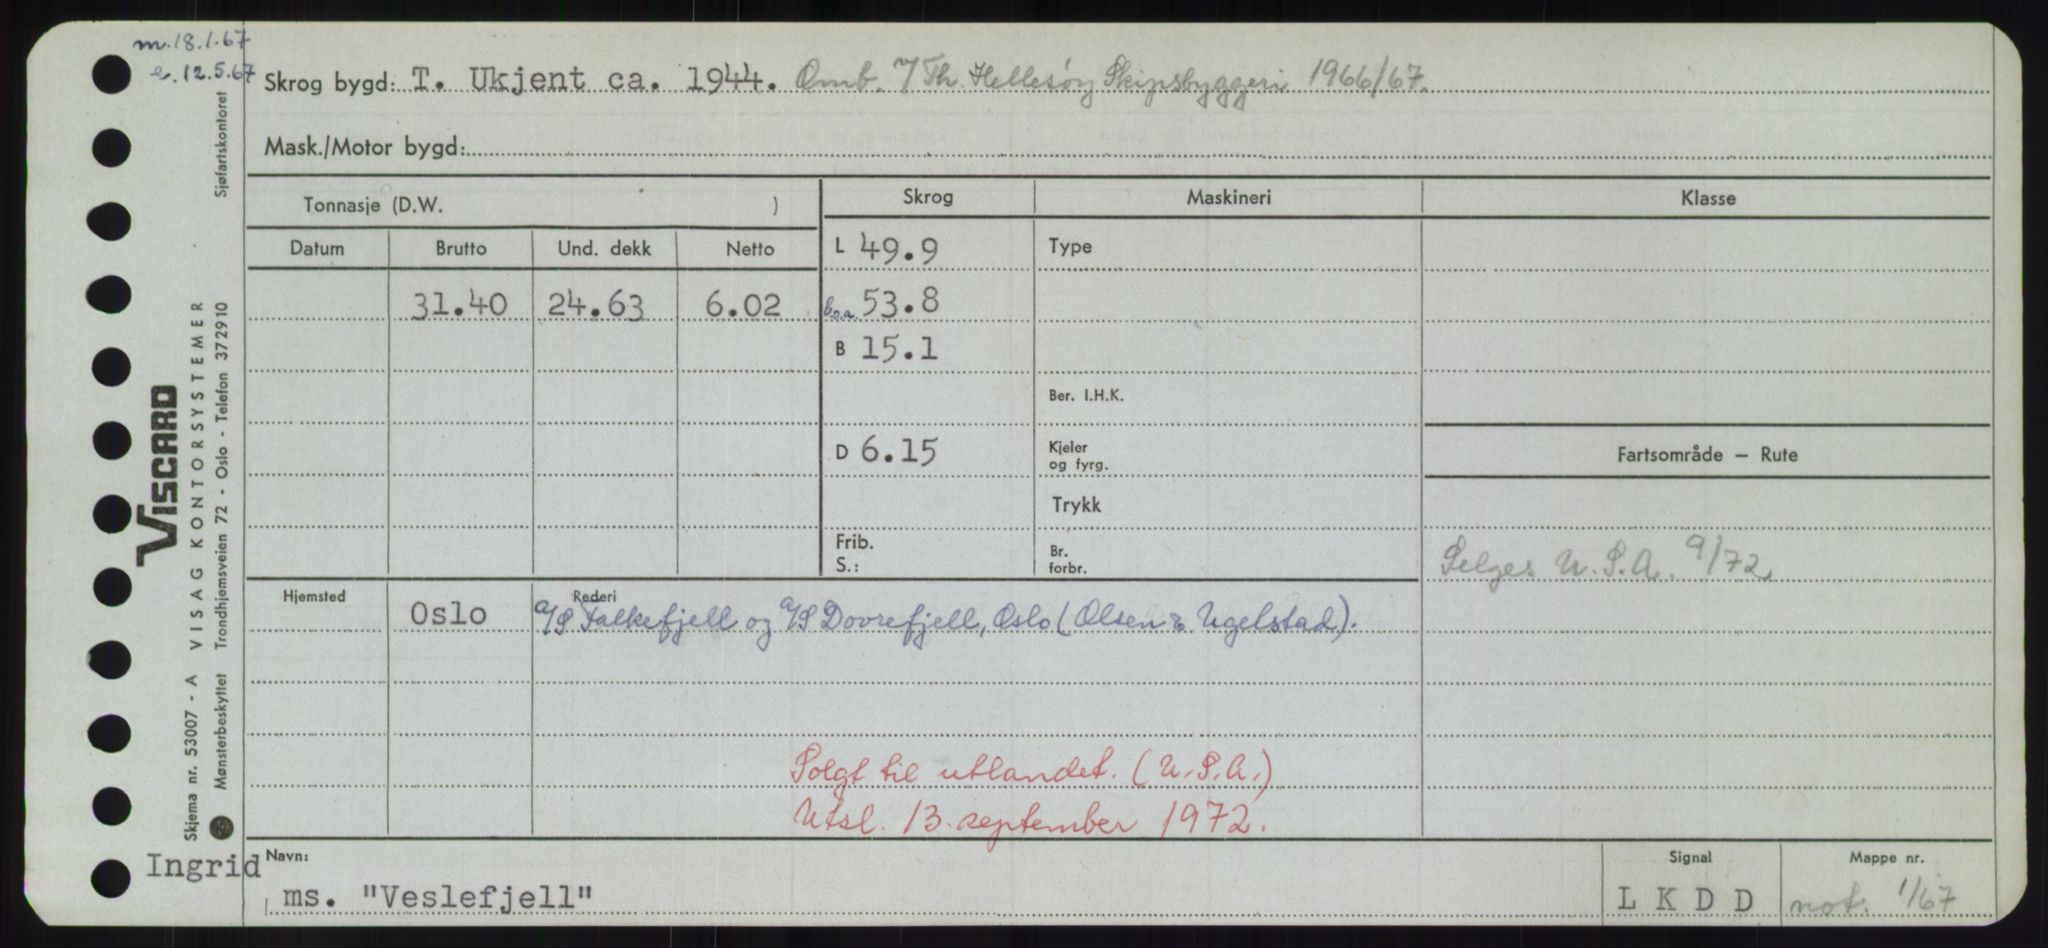 m. 18.1.67
e. 12.5.67
Skrog bygd: T. Ukjent ca. 1944. Omb. v/ Th. Hellesøy Skipsbyggeri 1966/67.
Mask./Motor bygd:
Tonnasje (D.W. )
Skrog Maskineri Klasse
Datum Brutto Und. dekk Netto
L 49.9 Type
31.40 24.63 6.02 l.o.a. 53.8
B 15.1
Ber. I.H.K.
D 6.15 Kjeler og fyrg.
Fartsområde – Rute
Trykk
Frib.
S.:
Br. forbr.
Selges U.S.A. 9/72
Hjemsted Rederi
Oslo A/S Falkefjell og A/S Dovrefjell, Oslo (Olsen & Ugelstad).
Solgt til utlandet. (U.S.A.)
Utsl. 13. september 1972.
Ingrid
Navn:
ms. "Veslefjell"
Signal
L K D D
Mappe nr.
not. 1/67
Sjøfartskontoret
VISCARD
VISAG KONTORSYSTEMER
Trondhjemsveien 72 - Oslo - Telefon 372910
Skjema nr. 53007 - A
Mønsterbeskyttet